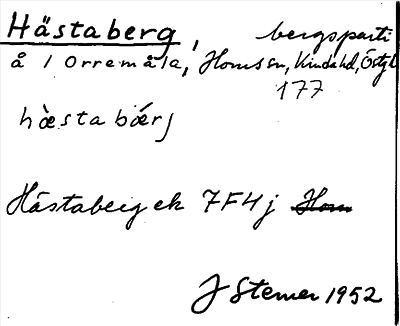 Hästaberg, bergsparti
å 1 Orremåla, Homs sn, Kinda hd, Östgl
177
hæ̀sta bǽrj
Hästaberg ek 7F4j Hom
J Stemer 1952